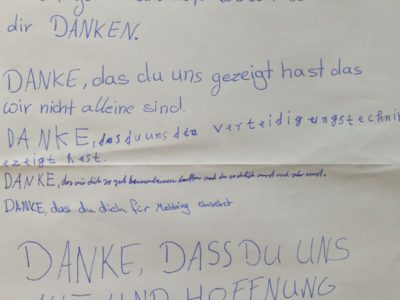 dir DANKEN.
DANKE, das du uns gezeigt hast das
wir nicht alleine sind.
DANKE, das du uns die Verteidigungstechni
ezeigt hast.
DANKE, das wir dich so gut kennenlernen durften und du
DANKE, das du dich für Mobbing einsetzt
DANKE, DASS DU UNS
UND HOFFNUNG